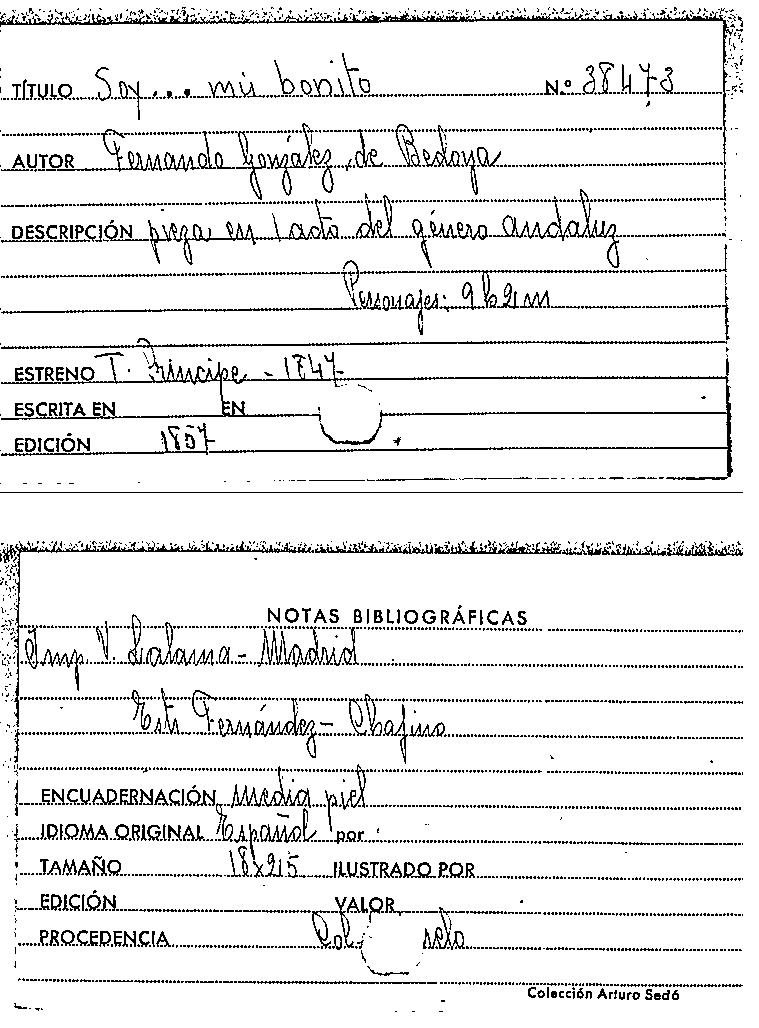 TÍTULO Soy... mú bonito N.º 38473
AUTOR Fernando González de Bedoya
DESCRIPCIÓN pieza en 1 acto del género andaluz
Personajes: 9 h 2 m
ESTRENO T. Príncipe - 1847
ESCRITA EN EN
EDICIÓN 1857
NOTAS BIBLIOGRÁFICAS
Imp V. Lalama - Madrid
Fernández -
ENCUADERNACIÓN Media piel
IDIOMA ORIGINAL Español por
TAMAÑO 18x215 ILUSTRADO POR
EDICIÓN VALOR
PROCEDENCIA Col
Colección Arturo Sedó